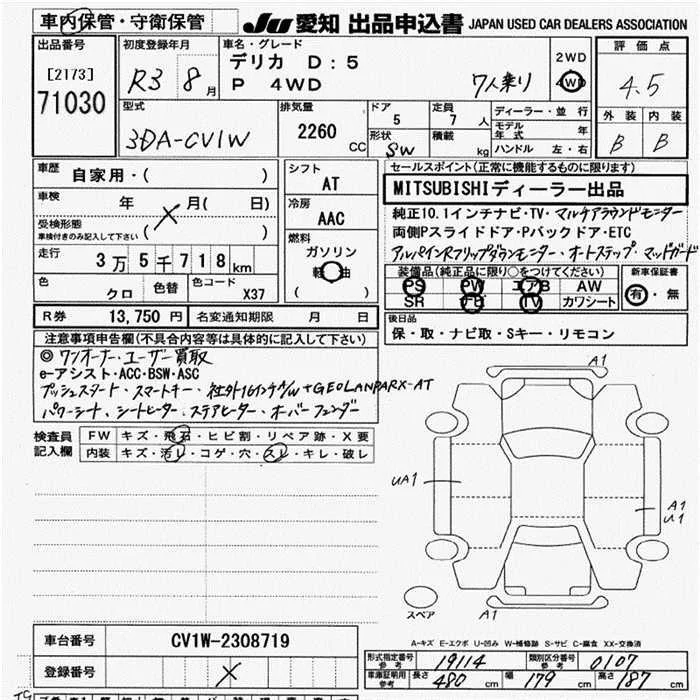 車内保管・守衛保管
JU 愛知 出品申込書 JAPAN USED CAR DEALERS ASSOCIATION
出品番号
[2173]
71030
初度登録年月
R3 8 月
車名・グレード
デリカ D:5
P 4WD
7人乗り
2WD
4WD
評価点
4.5
外装 内装
B B
型式
3DA-CV1W
排気量
2260 CC
ドア
5
定員
7 人
形状
SW
積載
kg
ディーラー・並行
モデル年式 年
ハンドル 左・右
車歴
自家用・( )
車検
年 月( 日)
受検形態
車検付きのみ記入して下さい ( )
走行
3万5千718km
色
クロ
色替
色コード
X37
シフト
AT
冷房
AAC
燃料
ガソリン
軽油
( )
セールスポイント(正常に機能するものに限ります)
MITSUBISHIディーラー出品
純正10.1インチナビ・TV・マルチアラウンドモニター
両側Pスライドドア・Pバックドア・ETC
アルパインRフリップダウンモニター・オートステップ・マッドガード
装備品(純正品に限り○をつけてください)
PS PW エアB AW
SR ナビ TV カワシート
新車保証書
有・無
R券 13,750円 名変通知期限 月 日
後日品
保・取・ナビ取・Sキー・リモコン
注意事項申告欄(不具合内容等は具体的に記入して下さい)
◎ワンオーナー・ユーザー買取
e-アシスト・ACC・BSW・ASC
プッシュスタート、スマートキー、社外16インチA/W+GEOLANDARX-AT
パワーシート、シートヒーター、ステアヒーター、オーバーフェンダー
検査員記入欄
FW キズ・飛石・ヒビ割・リペア跡・X要
内装 キズ・汚レ・コゲ・穴・スレ・キレ・破レ
A1
UA1
A1
U1
スペア
A1
A-キズ E-エクボ U-凹み W-補修跡 S-サビ C-腐食 XX-交換済
車台番号 CV1W-2308719
登録番号
形式指定番号 参考 19114 類別区分番号 参考 0107
車庫証明用 参考 長さ 480 cm 幅 179 cm 高さ 187 cm